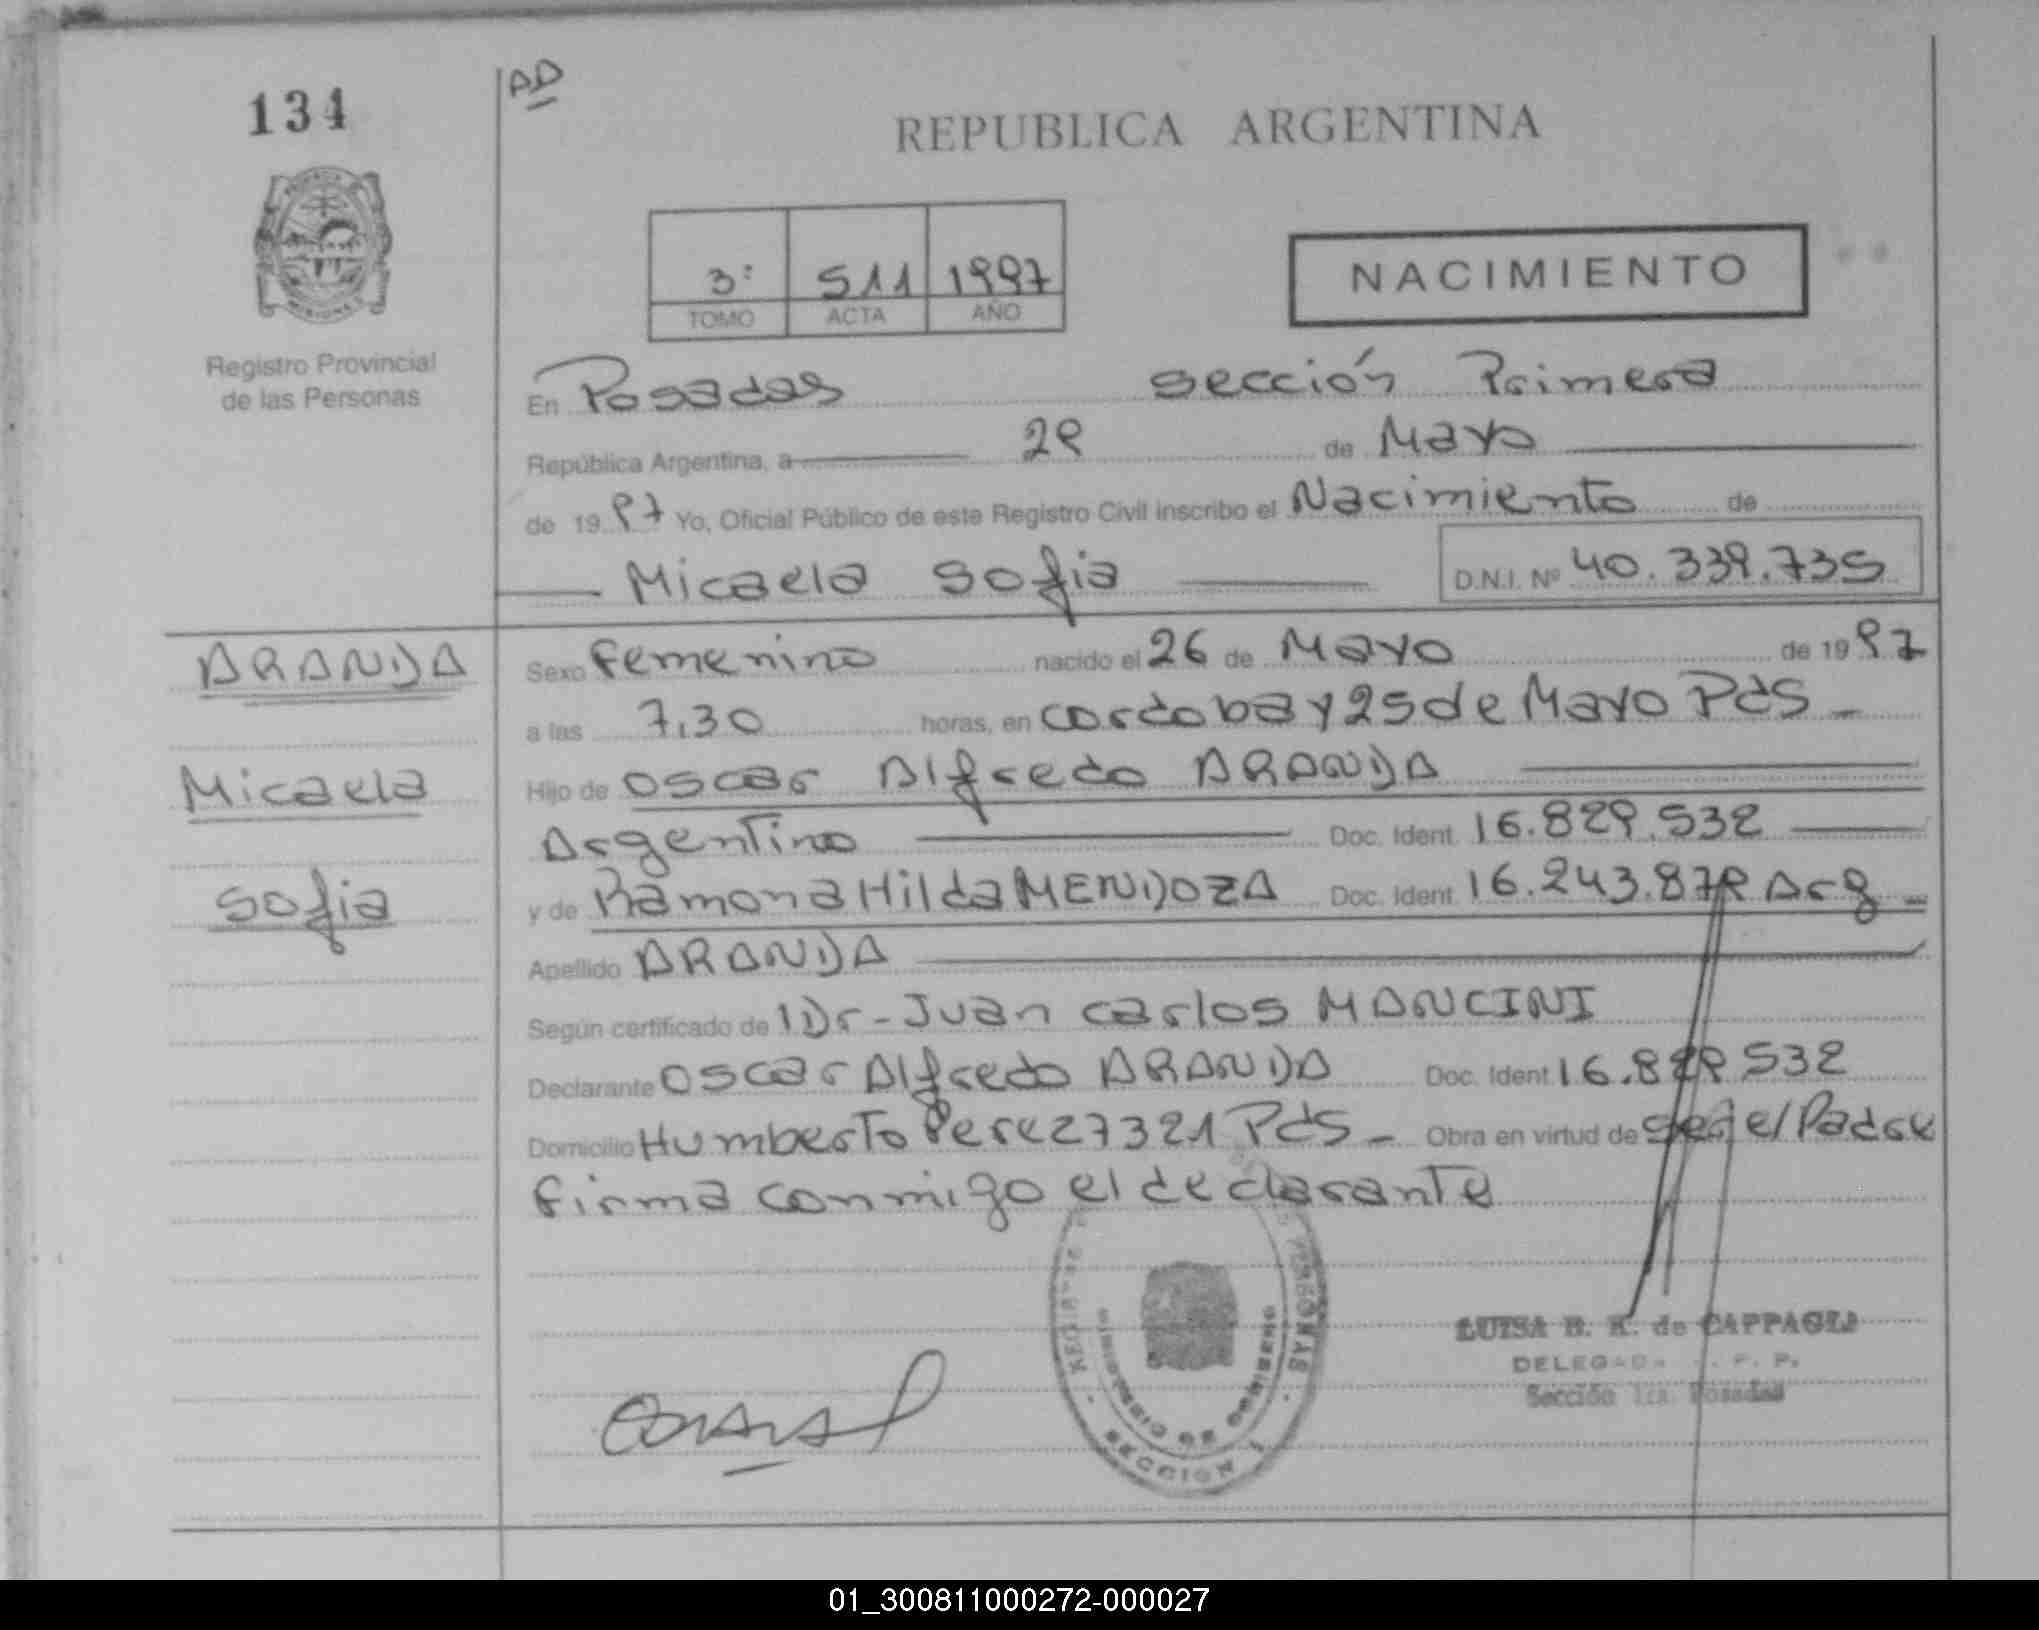 134
AD
REPUBLICA ARGENTINA
3: 511 1997
TOMO ACTA AÑO
NACIMIENTO
Registro Provincial
de las Personas
En Posadas sección Primera
República Argentina, a 29 de Mayo
de 19 97 Yo, Oficial Público de este Registro Civil inscribo el Nacimiento de
Micaela Sofia D.N.I. Nº 40.339.735
ARANDA
Micaela
Sofia
Sexo Femenino nacido el 26 de Mayo de 19 97
a las 7,30 horas, en Cordoba y 25 de Mayo Pds -
Hijo de Oscar Alfredo ARANDA
Argentino Doc. Ident. 16.829.532
y de Ramona Hilda MENDOZA Doc. Ident. 16.243.879 Arg -
Apellido ARANDA
Según certificado de Dr - Juan Carlos MANCINI
Declarante Oscar Alfredo ARANDA Doc. Ident. 16.829.532
Domicilio Humberto Perez 7321 Pds - Obra en virtud de ser el Padre
Firma conmigo el declarante
MINISTERIO DE GOBIERNO
SECCION 1
LUISA B. K. de CAPPAGLI
DELEGADA
Sección 1ra. Posadas
01_300811000272-000027